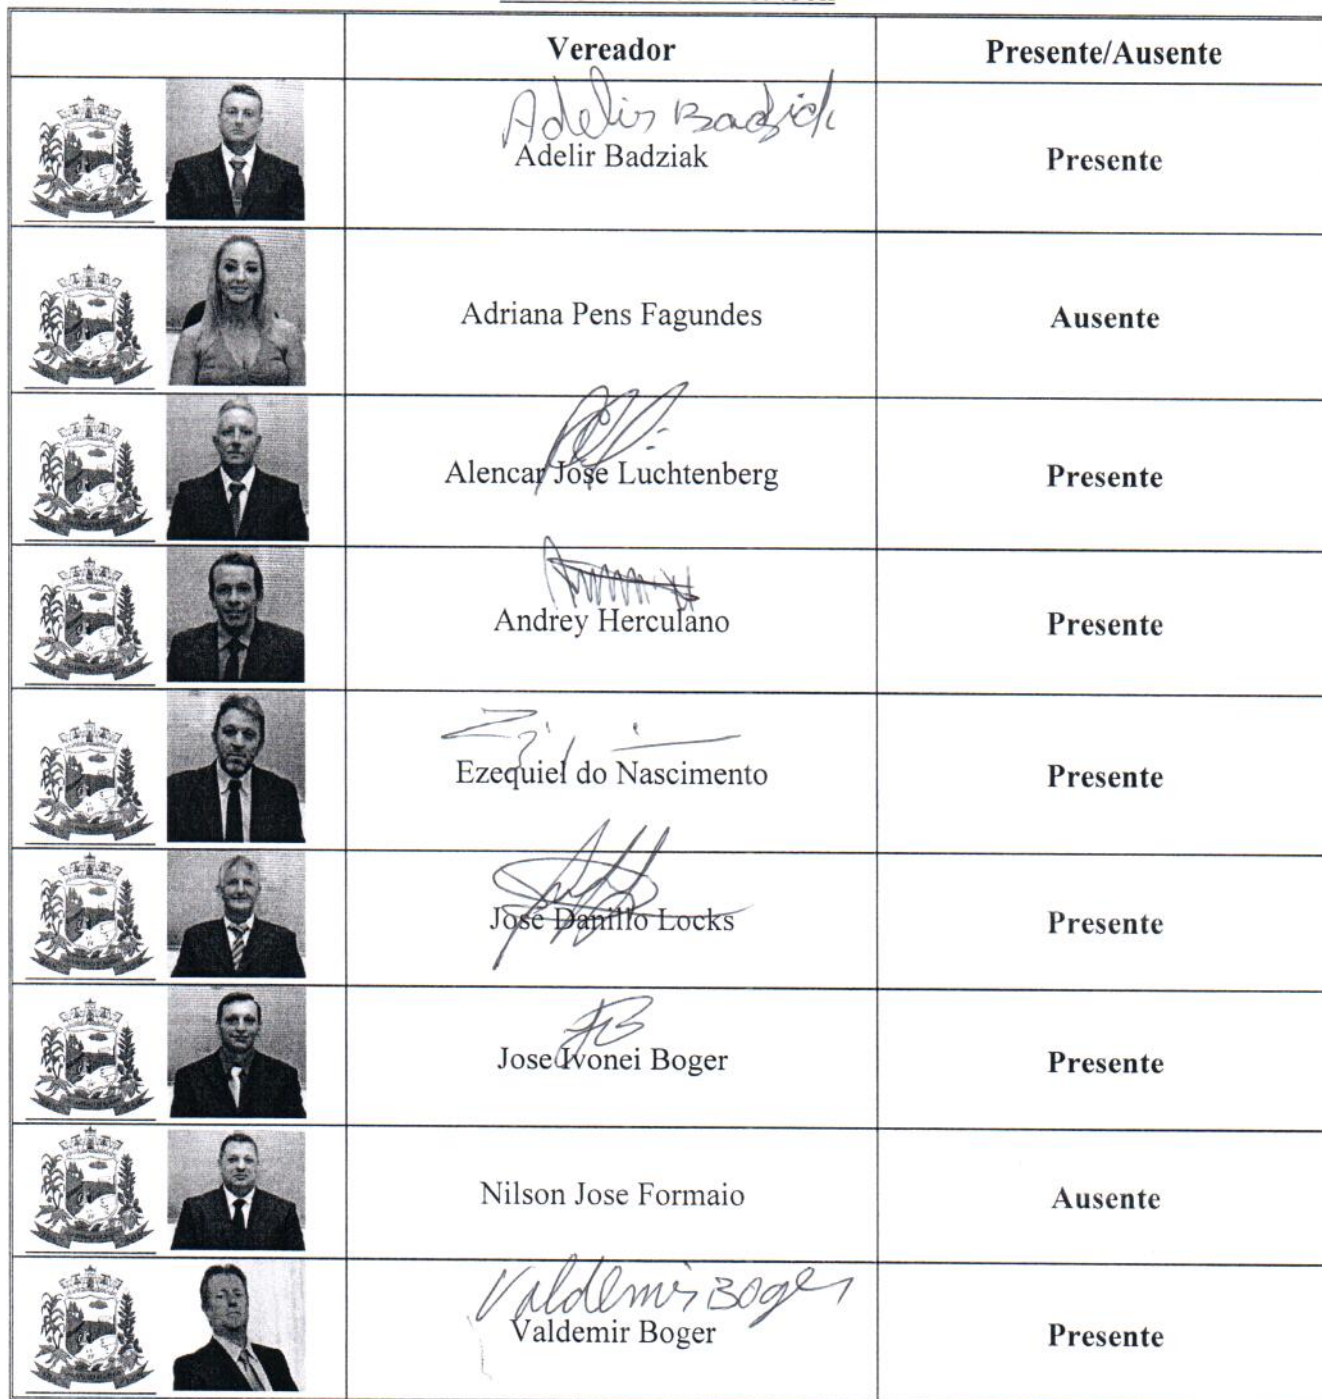 Vereador Presente/Ausente
Adelir Badziak
Adelir Badziak Presente
Adriana Pens Fagundes Ausente
Alencar Jose Luchtenberg Presente
Andrey Herculano Presente
Ezequiel do Nascimento Presente
José Danillo Locks Presente
JB
Jose Ivonei Boger Presente
Nilson Jose Formaio Ausente
Valdemir Boger
Valdemir Boger Presente